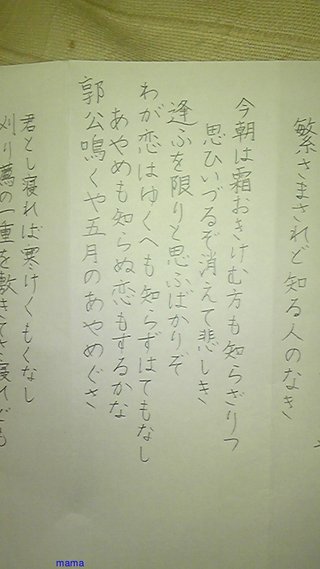 繁さまされど知る人のなき
今朝は霜おきけむ方も知らざりつ
思ひいづるぞ消えて悲しき
逢ふを限りと思ふばかりぞ
わが恋はゆくへも知らずはてもなし
あやめも知らぬ恋もするかな
郭公鳴くや五月のあやめぐさ
君とし寝れば寒けくもなし
刈り薦の一重を敷きてさ寝れども
mama